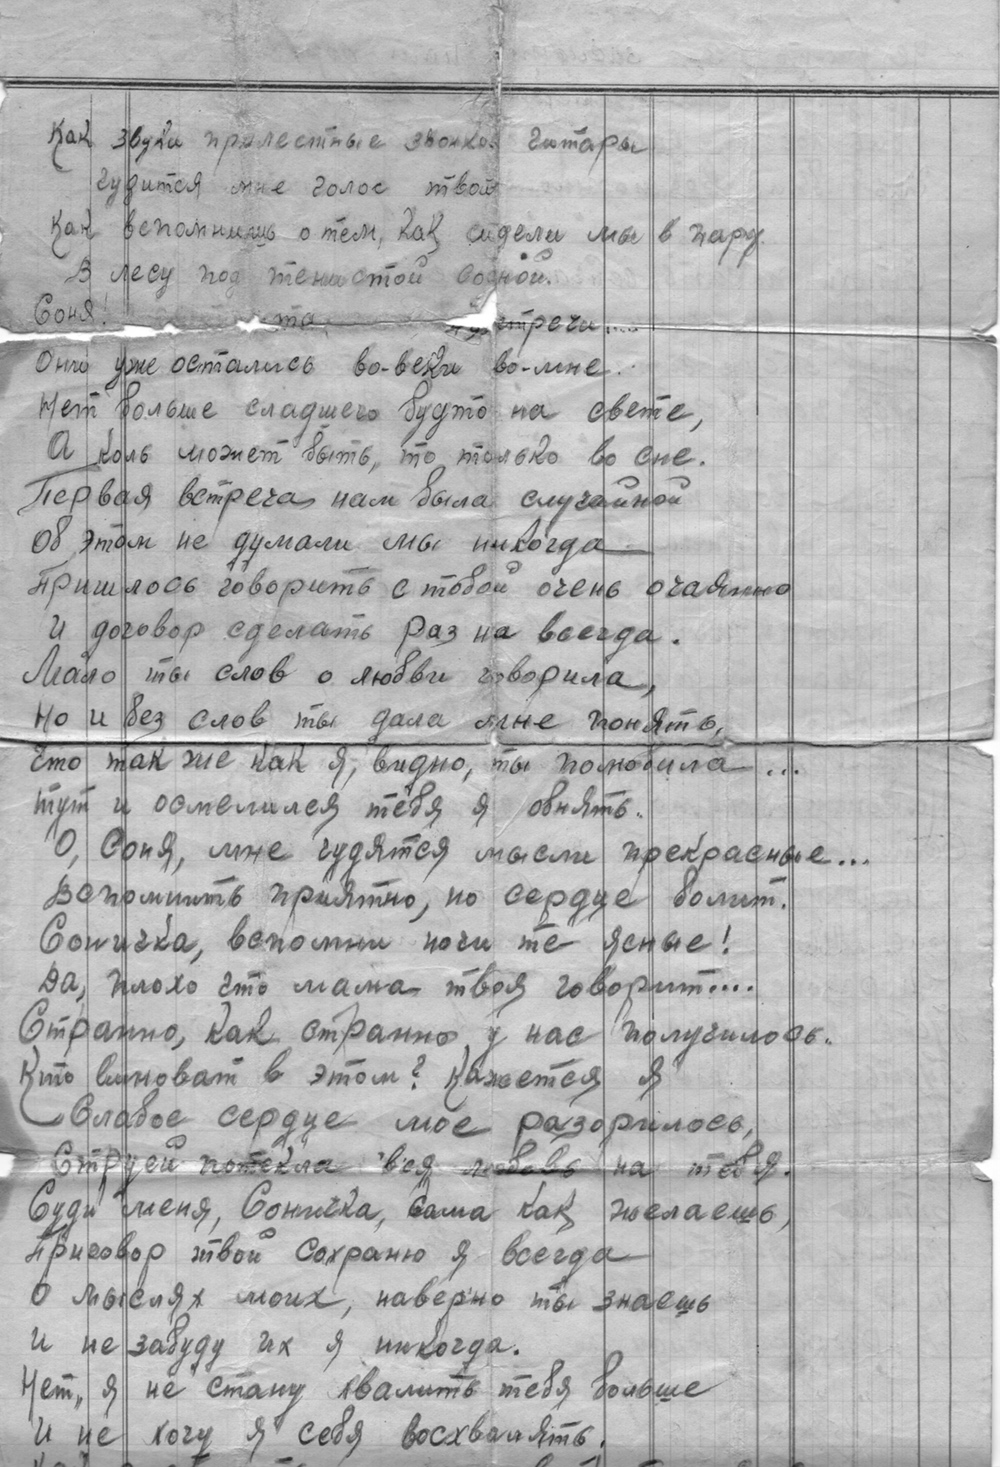 Как звуки прелестные звонкой гитары
Чудится мне голос твой
Как вспомнишь о тем, как сидели мы в пару
В лесу под тенистой сосной.
Соня! та, встречи
Они уже остались во-веки во-мне.
Нет больше сладшего будто на свете,
А коль может быть, то только во сне.
Первая встреча нам была случайной
Об этом не думали мы никогда
Пришлось говорить с тобой очень очаянно
И договор сделать раз на всегда.
Мало ты слов о любви говорила,
Но и без слов ты дала мне понять,
Что так же как я, видно, ты полюбила ...
Тут и осмелился тебя я обнять.
О, Соня, мне чудятся мысли прекрасные...
Вспомнить приятно, но сердце болит.
Соничка, вспомни ночи те ясные!
Да, плохо что мама твоя говорит....
Странно, как странно у нас получилось.
Кто виноват в этом? Кажется я
Слабое сердце мое разорилось,
Струей потекла вся любовь на тебя.
Суди меня, Соничка, сама как желаешь,
Приговор твой сохраню я всегда
О мыслях моих, наверно ты знаешь
И не забуду их я никогда.
Нет, я не стану хвалить тебя больше
И не хочу я себя восхвалять.